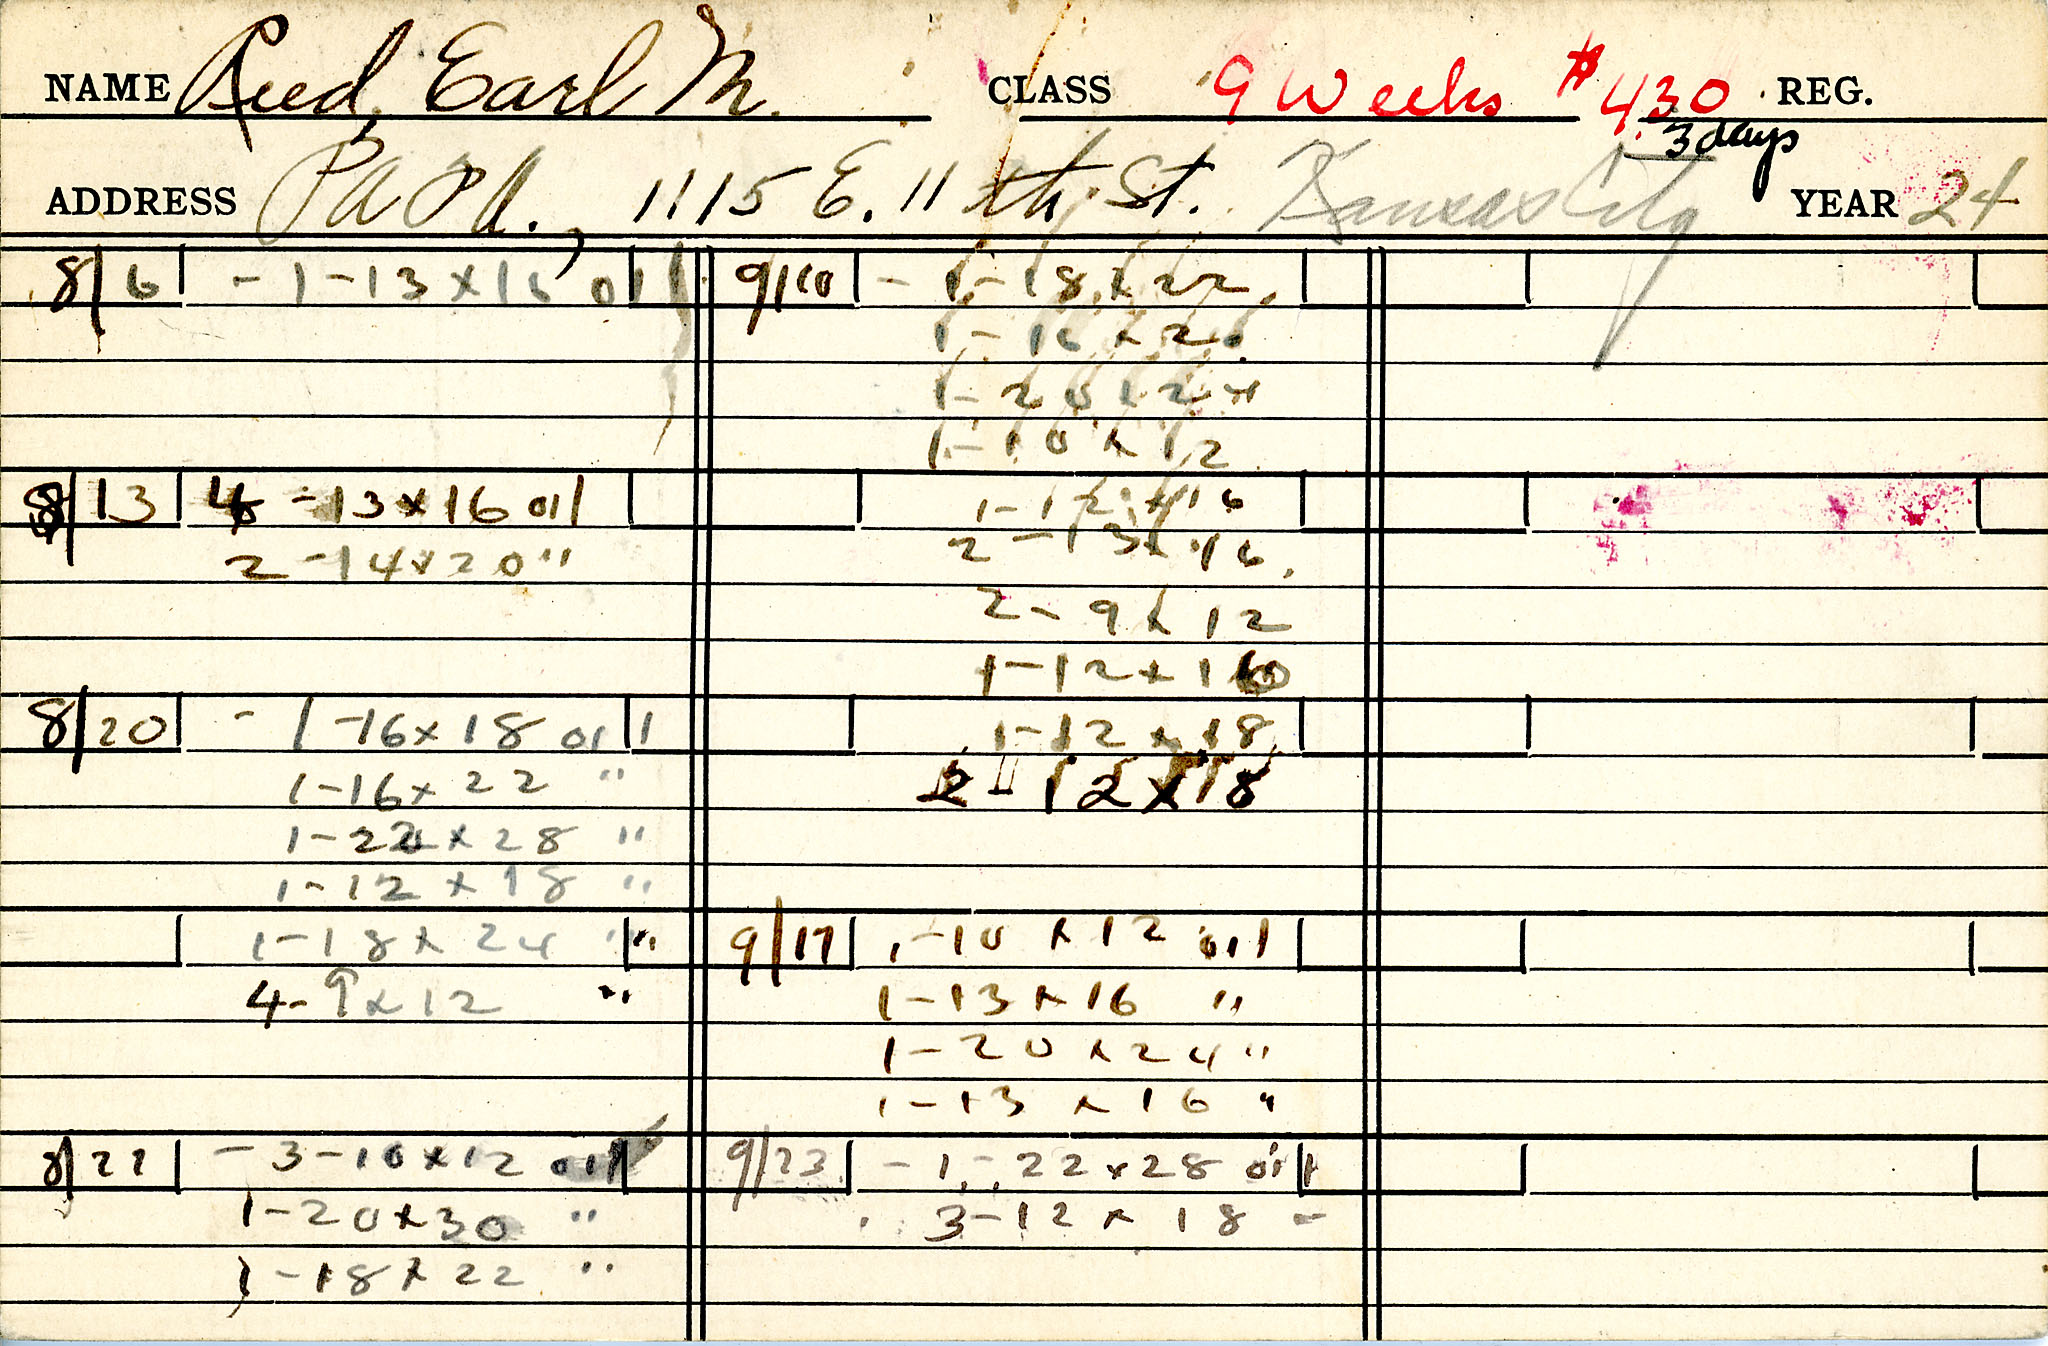 NAME Reed, Earl M. CLASS 9 Weeks #430 REG.
3 days
ADDRESS Paoli, 1115 E. 11th St. Kansas City YEAR 24
8/6 - 1-13x16 oil
8/13 4 -13x16 oil
2 -14x20 "
8/20 - 1-16x18 oil
1-16x22 "
1-22x28 "
1-12x18 "
1-18x24 "
4-9x12 "
8/22 - 3-10x12 oil
1-20x30 "
1-18x22 "
9/10 - 1-18x22
1-16x20
1-20x24
1-10x12
1-12x16
2-13x16
2-9x12
1-12x16
1-12x18
2-12x18
9/17 1-10x12 oil
1-13x16 "
1-20x24 "
1-13x16 "
9/23 - 1-22x28 oil
3-12x18 "